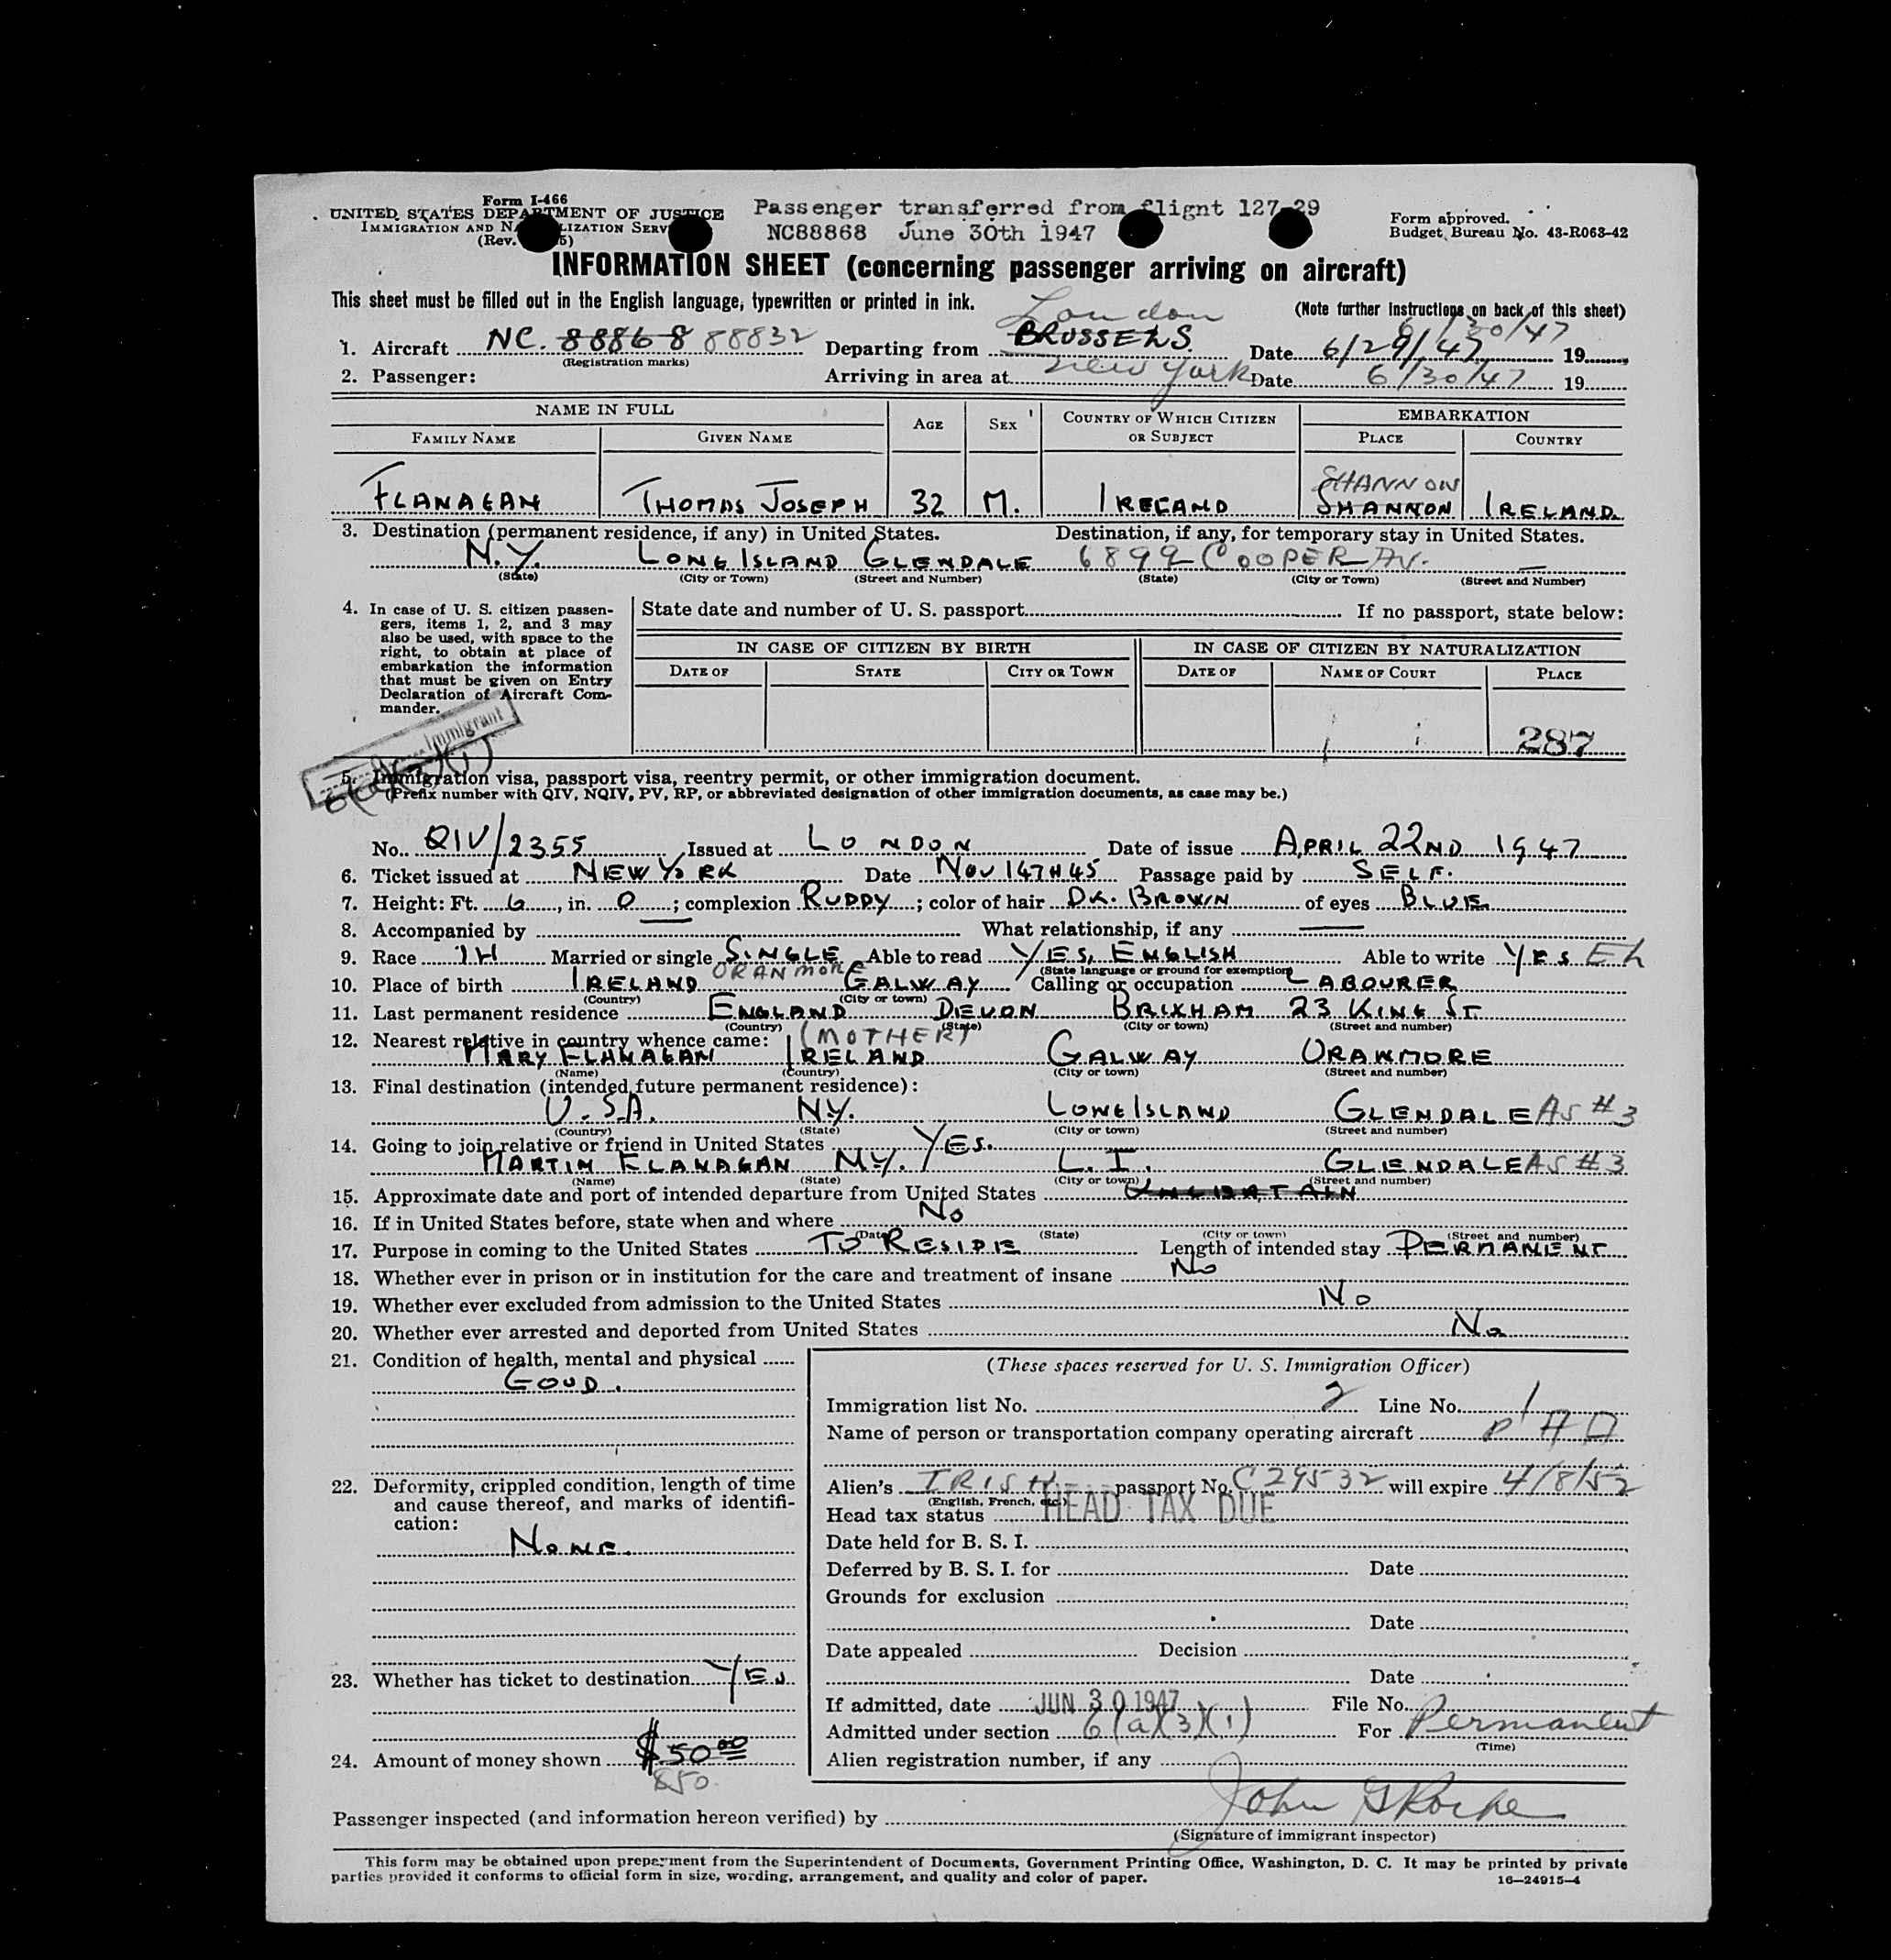 Form I-466
UNITED STATES DEPARTMENT OF JUSTICE
IMMIGRATION AND NATURALIZATION SERV
(Rev. 5)
Passenger transferred from flignt 127-29
NC88868 June 30th 1947
Form approved.
Budget Bureau No. 43-R063-42
INFORMATION SHEET (concerning passenger arriving on aircraft)
This sheet must be filled out in the English language, typewritten or printed in ink.
(Note further instructions on back of this sheet)
London
1. Aircraft NC. 88868 88832 Departing from BRUSSELS. Date 6/29/47 6/30/47 19
(Registration marks)
2. Passenger: Arriving in area at New York Date 6/30/47 19
NAME IN FULL AGE SEX COUNTRY OF WHICH CITIZEN OR SUBJECT EMBARKATION
FAMILY NAME GIVEN NAME PLACE COUNTRY
SHANNON
FLANAGAN THOMAS JOSEPH 32 M. IRELAND SHANNON IRELAND.
3. Destination (permanent residence, if any) in United States. Destination, if any, for temporary stay in United States.
N.Y. LONG ISLAND GLENDALE 6899 COOPER AV. —
(State) (City or Town) (Street and Number) (State) (City or Town) (Street and Number)
4. In case of U. S. citizen passen-
gers, items 1, 2, and 3 may
also be used, with space to the
right, to obtain at place of
embarkation the information
that must be given on Entry
Declaration of Aircraft Com-
mander.
State date and number of U. S. passport If no passport, state below:
IN CASE OF CITIZEN BY BIRTH IN CASE OF CITIZEN BY NATURALIZATION
DATE OF STATE CITY OR TOWN DATE OF NAME OF COURT PLACE
287
Immigrant
5. Immigration visa, passport visa, reentry permit, or other immigration document.
(Prefix number with QIV, NQIV, PV, RP, or abbreviated designation of other immigration documents, as case may be.)
No. QIV/2355 Issued at LONDON Date of issue APRIL 22ND 1947
6. Ticket issued at NEW YORK Date NOV 14TH 45 Passage paid by SELF.
7. Height: Ft. 6, in. 0; complexion RUDDY; color of hair DK. BROWN of eyes BLUE.
8. Accompanied by What relationship, if any —
9. Race IH Married or single SINGLE Able to read YES, ENGLISH Able to write YES Eh
(State language or ground for exemption)
10. Place of birth IRELAND ORANMORE GALWAY Calling or occupation LABOURER
(Country) (City or town)
11. Last permanent residence ENGLAND DEVON BRIXHAM 23 KING ST.
(Country) (State) (City or town) (Street and number)
12. Nearest relative in country whence came: (MOTHER)
MARY FLANAGAN IRELAND GALWAY ORANMORE
(Name) (Country) (City or town) (Street and number)
13. Final destination (intended future permanent residence):
U.S.A. N.Y. LONG ISLAND GLENDALE AS #3
(Country) (State) (City or town) (Street and number)
14. Going to join relative or friend in United States YES.
MARTIN FLANAGAN N.Y. L.I. GLENDALE AS #3
(Name) (State) (City or town) (Street and number)
15. Approximate date and port of intended departure from United States UNCERTAIN
16. If in United States before, state when and where No
(Date) (State) (City or town) (Street and number)
17. Purpose in coming to the United States TO RESIDE Length of intended stay PERMANENT
18. Whether ever in prison or in institution for the care and treatment of insane No
19. Whether ever excluded from admission to the United States No
20. Whether ever arrested and deported from United States No
21. Condition of health, mental and physical
GOOD.
22. Deformity, crippled condition, length of time
and cause thereof, and marks of identifi-
cation:
NONE.
23. Whether has ticket to destination YES
24. Amount of money shown $50.00
$50
(These spaces reserved for U. S. Immigration Officer)
Immigration list No. 2 Line No. 1
Name of person or transportation company operating aircraft
Alien's IRISH passport No. C29532 will expire 4/8/52
(English, French, etc.)
Head tax status HEAD TAX DUE
Date held for B. S. I.
Deferred by B. S. I. for Date
Grounds for exclusion
Date
Date appealed Decision
Date
If admitted, date JUN 30 1947 File No.
Admitted under section 6(a)(3)(1) For Permanent
(Time)
Alien registration number, if any
Passenger inspected (and information hereon verified) by John G Roche
(Signature of immigrant inspector)
This form may be obtained upon prepayment from the Superintendent of Documents, Government Printing Office, Washington, D. C. It may be printed by private
parties provided it conforms to official form in size, wording, arrangement, and quality and color of paper.
16—24915-4